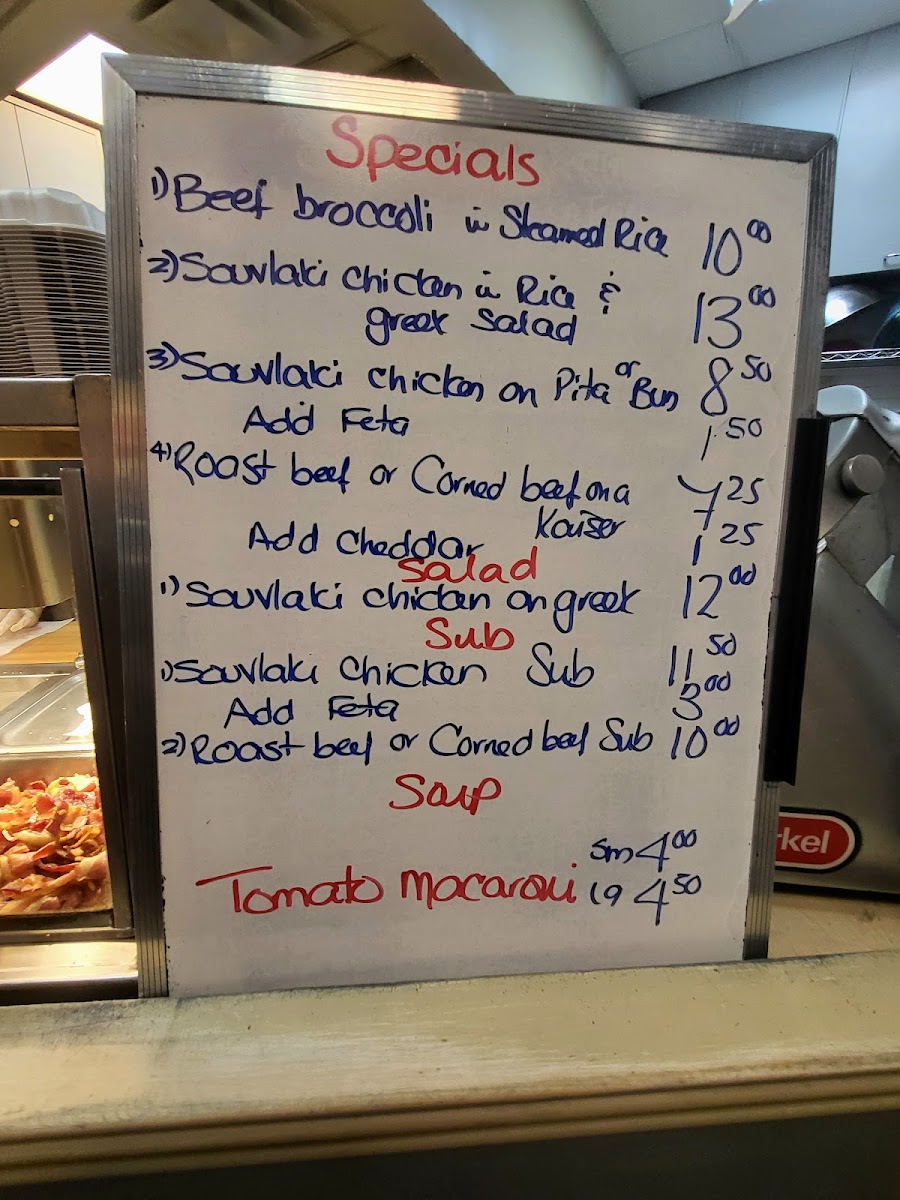 Specials
1) Beef broccoli w Steamed Rice 10.00
2) Souvlaki chicken w Rice &
greek salad 13.00
3) Souvlaki chicken on Pita or Bun 8.50
Add Feta 1.50
4) Roast beef or Corned beef on a 7.25
Kaiser
Add cheddar 1.25
Salad
1) Souvlaki chicken on greek 12.00
Sub
1) Souvlaki chicken Sub 11.50
Add Feta 3.00
2) Roast beef or Corned beef Sub 10.00
Soup
sm 4.00
Tomato macaroni lg 4.50
rkel